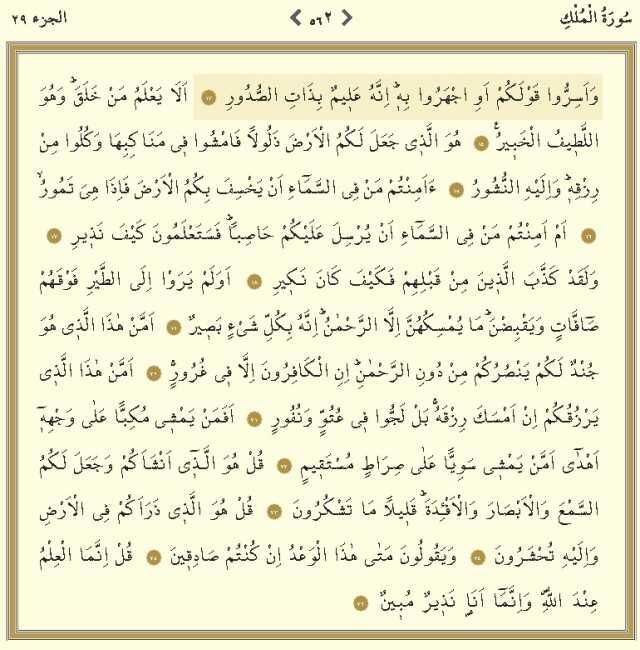 سُورَةُ الْمُلْكِ ٥٦٢ الجزء ٢٩
وَاَسِرُّوا قَوْلَكُمْ اَوِ اجْهَرُوا بِهِۜ اِنَّهُ عَلِيمٌ بِذَاتِ الصُّدُورِ ﴿١٣﴾ اَلَا يَعْلَمُ مَنْ خَلَقَۜ وَهُوَ
اللَّطِيفُ الْخَبِيرُ۟ ﴿١٤﴾ هُوَ الَّذِي جَعَلَ لَكُمُ الْاَرْضَ ذَلُولًا فَامْشُوا فِي مَنَاكِبِهَا وَكُلُوا مِنْ
رِزْقِهِۜ وَاِلَيْهِ النُّشُورُ ﴿١٥﴾ ءَاَمِنْتُمْ مَنْ فِي السَّمَٓاءِ اَنْ يَخْسِفَ بِكُمُ الْاَرْضَ فَاِذَا هِيَ تَمُورُۙ
﴿١٦﴾ اَمْ اَمِنْتُمْ مَنْ فِي السَّمَٓاءِ اَنْ يُرْسِلَ عَلَيْكُمْ حَاصِبًاۜ فَسَتَعْلَمُونَ كَيْفَ نَذِيرِ ﴿١٧﴾
وَلَقَدْ كَذَّبَ الَّذِينَ مِنْ قَبْلِهِمْ فَكَيْفَ كَانَ نَكِيرِ ﴿١٨﴾ اَوَلَمْ يَرَوْا اِلَى الطَّيْرِ فَوْقَهُمْ
صَٓافَّاتٍ وَيَقْبِضْنَۜ مَا يُمْسِكُهُنَّ اِلَّا الرَّحْمٰنُۜ اِنَّهُ بِكُلِّ شَيْءٍ بَصِيرٌ ﴿١٩﴾ اَمَّنْ هٰذَا الَّذِي هُوَ
جُنْدٌ لَكُمْ يَنْصُرُكُمْ مِنْ دُونِ الرَّحْمٰنِۜ اِنِ الْكَافِرُونَ اِلَّا فِي غُرُورٍۚ ﴿٢٠﴾ اَمَّنْ هٰذَا الَّذِي
يَرْزُقُكُمْ اِنْ اَمْسَكَ رِزْقَهُۚ بَلْ لَجُّوا فِي عُتُوٍّ وَنُفُورٍ ﴿٢١﴾ اَفَمَنْ يَمْشِي مُكِبًّا عَلٰى وَجْهِهِٓ
اَهْدٰٓى اَمَّنْ يَمْشِي سَوِيًّا عَلٰى صِرَاطٍ مُسْتَقِيمٍ ﴿٢٢﴾ قُلْ هُوَ الَّذِٓي اَنْشَاَكُمْ وَجَعَلَ لَكُمُ
السَّمْعَ وَالْاَبْصَارَ وَالْاَفْـِٔدَةَۜ قَلِيلًا مَا تَشْكُرُونَ ﴿٢٣﴾ قُلْ هُوَ الَّذِي ذَرَاَكُمْ فِي الْاَرْضِ
وَاِلَيْهِ تُحْشَرُونَ ﴿٢٤﴾ وَيَقُولُونَ مَتٰى هٰذَا الْوَعْدُ اِنْ كُنْتُمْ صَادِقِينَ ﴿٢٥﴾ قُلْ اِنَّمَا الْعِلْمُ
عِنْدَ اللّٰهِۖ وَاِنَّمَٓا اَنَا۬ نَذِيرٌ مُبِينٌ ﴿٢٦﴾